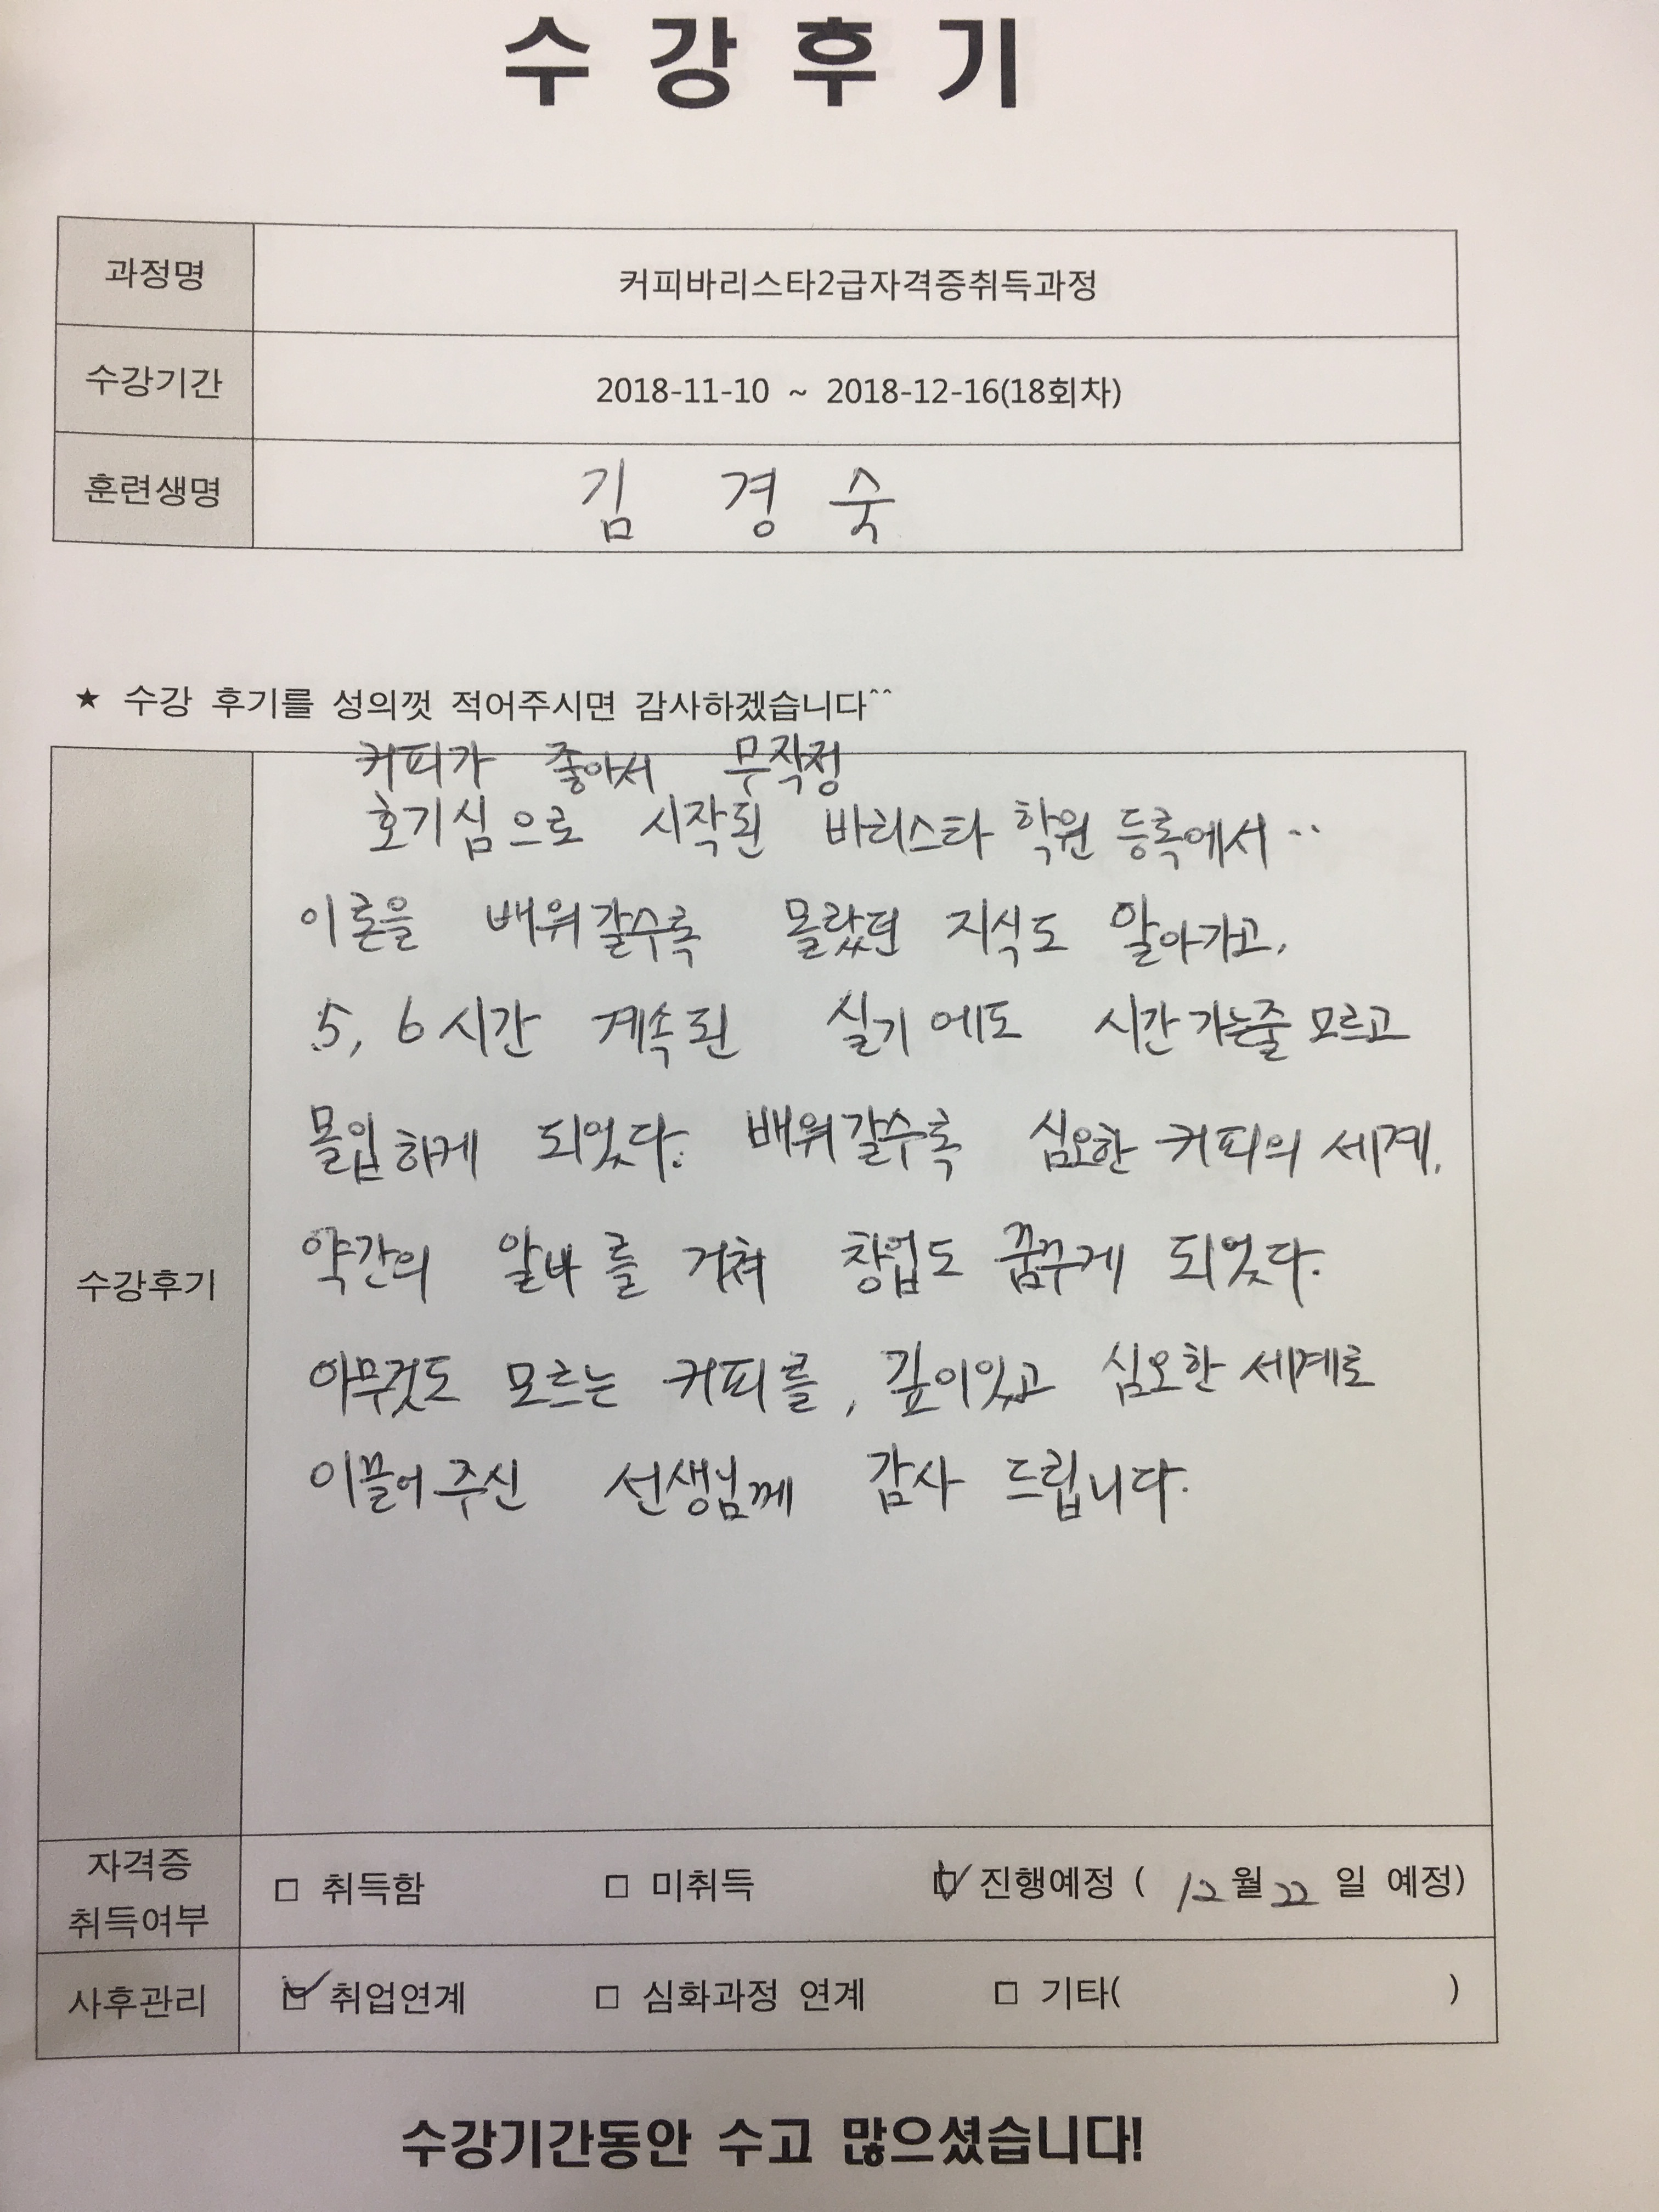 수강후기
과정명 커피바리스타2급자격증취득과정
수강기간 2018-11-10 ~ 2018-12-16(18회차)
훈련생명 김 경 숙
★ 수강 후기를 성의껏 적어주시면 감사하겠습니다^^
커피가 좋아서 무작정
호기심으로 시작된 바리스타 학원 등록에서..
이론을 배워갈수록 몰랐던 지식도 알아가고,
5, 6시간 계속된 실기에도 시간가는줄 모르고
몰입하게 되었다. 배워갈수록 심오한 커피의 세계,
약간의 알바를 거쳐 창업도 꿈꾸게 되었다.
수강후기
아무것도 모르는 커피를, 깊이있고 심오한 세계로
이끌어주신 선생님께 감사 드립니다.
자격증 취득여부 □ 취득함 □ 미취득 ☑ 진행예정 ( 12월 22일 예정)
사후관리 ☑ 취업연계 □ 심화과정 연계 □ 기타( )
수강기간동안 수고 많으셨습니다!